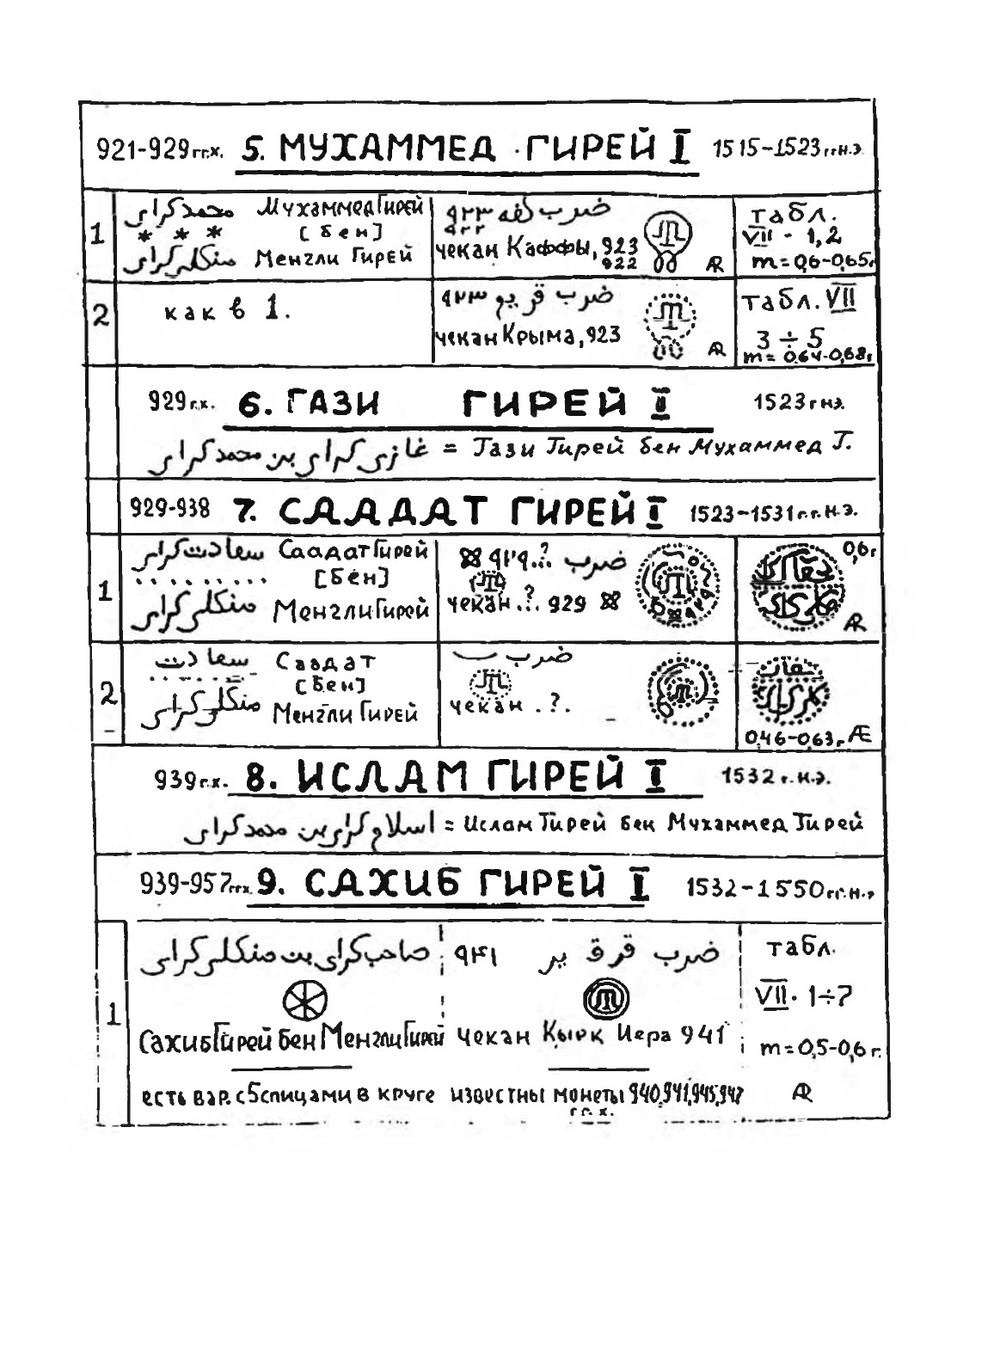 921-929 гг.х. 5. МУХАММЕД ГИРЕЙ I 1515-1523 гг.н.э.
1
محمد كراى Мухаммед Гирей
* * * [бен]
منكلى كراى Менгли Гирей
ضرب كفه ٩٢٣
٩٢٢
чекан Каффы, 923
922
AR
табл.
VII - 1,2
m=0,6-0,65г
2
как в 1.
ضرب قريم ٩٢٣
чекан Крыма, 923
AR
табл. VII
3 ÷ 5
m=0,64-0,68г
929 г.х. 6. ГАЗИ ГИРЕЙ I 1523 г нэ.
غازى كراى بن محمد كراى = Гази Гирей бен Мухаммед Г.
929-938 7. СААДАТ ГИРЕЙ I 1523-1531 г.г. н.э.
1
سعادت كراى Саадат Гирей
[бен]
منكلى كراى Менгли Гирей
ضرب ..? ٩٢٩
чекан .?. 929
0,6г
AR
2
سعادت Саадат
[бен]
منكلى كراى Менгли Гирей
ضرب
чекан .?.
0,46-0,63г Æ
939 г.х. 8. ИСЛАМ ГИРЕЙ I 1532 г.н.э.
اسلام كراى بن محمد كراى = Ислам Гирей бен Мухаммед Гирей
939-957 гг.х. 9. САХИБ ГИРЕЙ I 1532-1550 гг.н.э
1
صاحب كراى بن منكلى كراى
ضرب قرق ير ٩٤١
Сахиб Гирей бен Менгли Гирей
чекан Кырк Иера 941
есть вар. с 5 спицами в круге
известны монеты 940,941,945,947
г.г. х.
табл.
VII. 1÷7
m=0,5-0,6 г.
AR